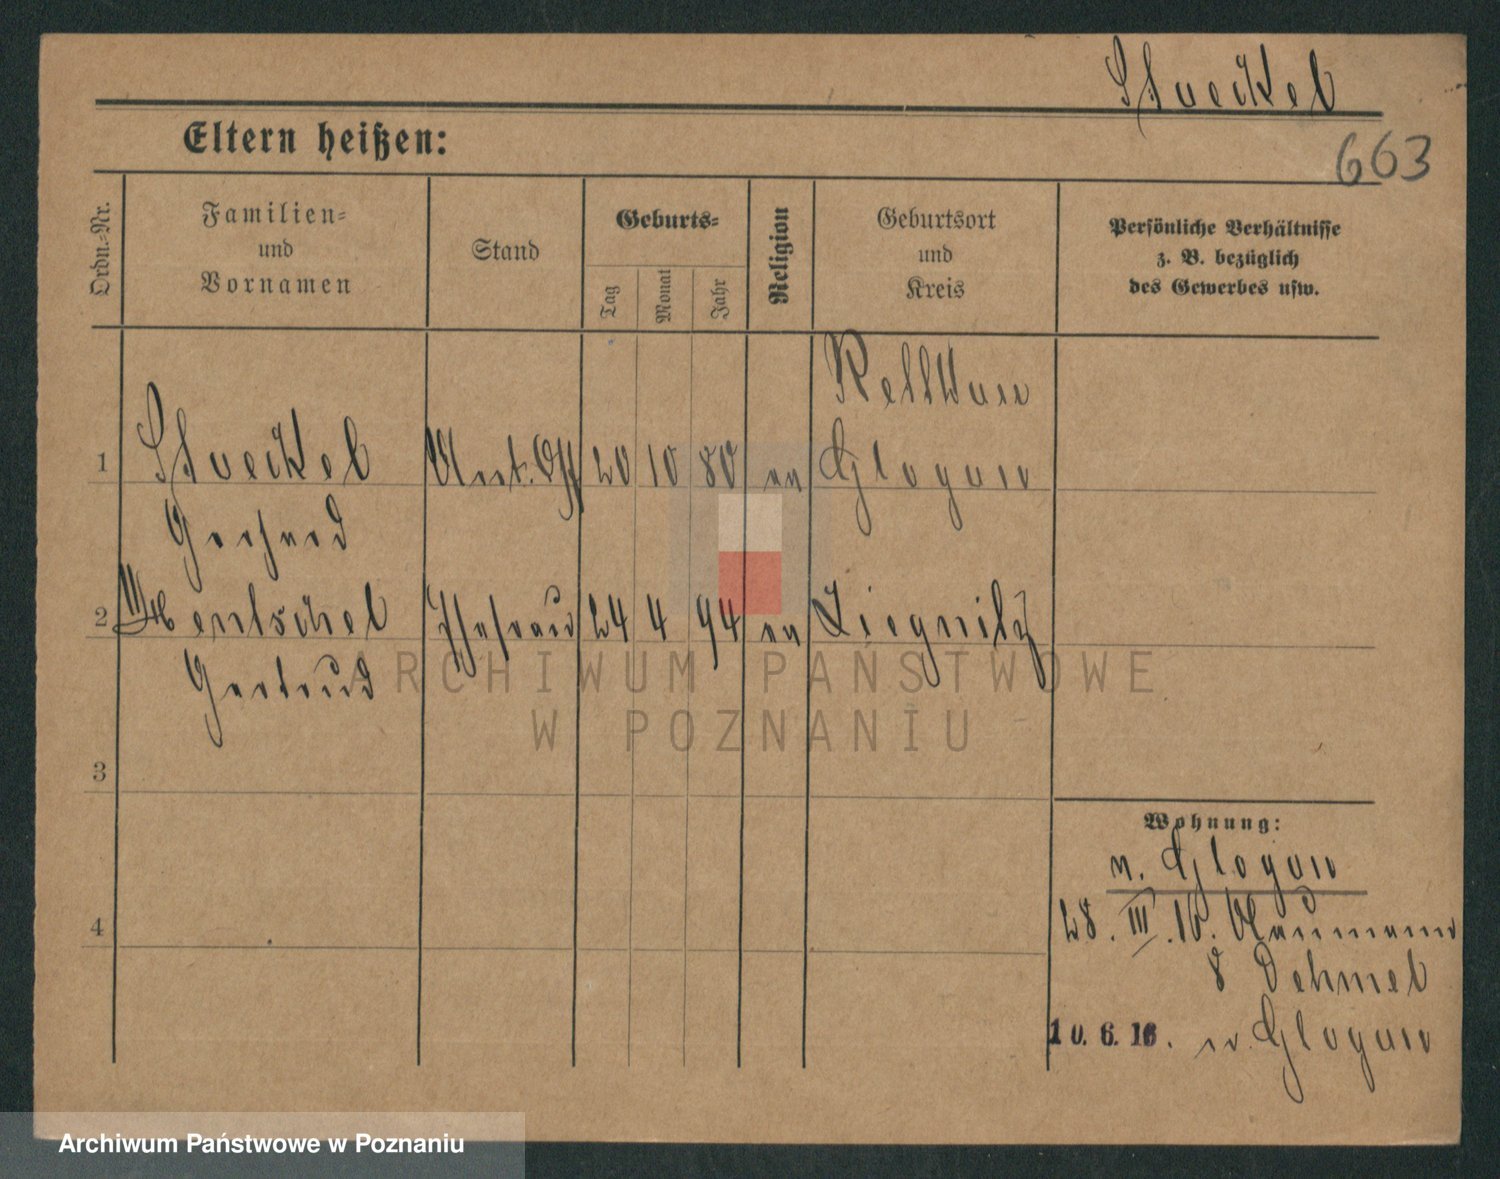 Stoeckel
663
Eltern heißen:
Ordn.-Nr.
Familien-
und
Vornamen
Stand
Geburts-
Tag
Monat
Jahr
Religion
Geburtsort
und
Kreis
Persönliche Verhältnisse
z. B. bezüglich
des Gewerbes usw.
1
Stoeckel
Gerhard
20 10 80
Glogau
2
Hentschel
Gertrud
Ehefrau
24 4 94
Liegnitz
3
4
Wohnung:
n. Glogau
28. III. 16. Naumann
8 Dehmel
10. 6. 16. n. Glogau
ARCHIWUM PAŃSTWOWE
W POZNANIU
Archiwum Państwowe w Poznaniu